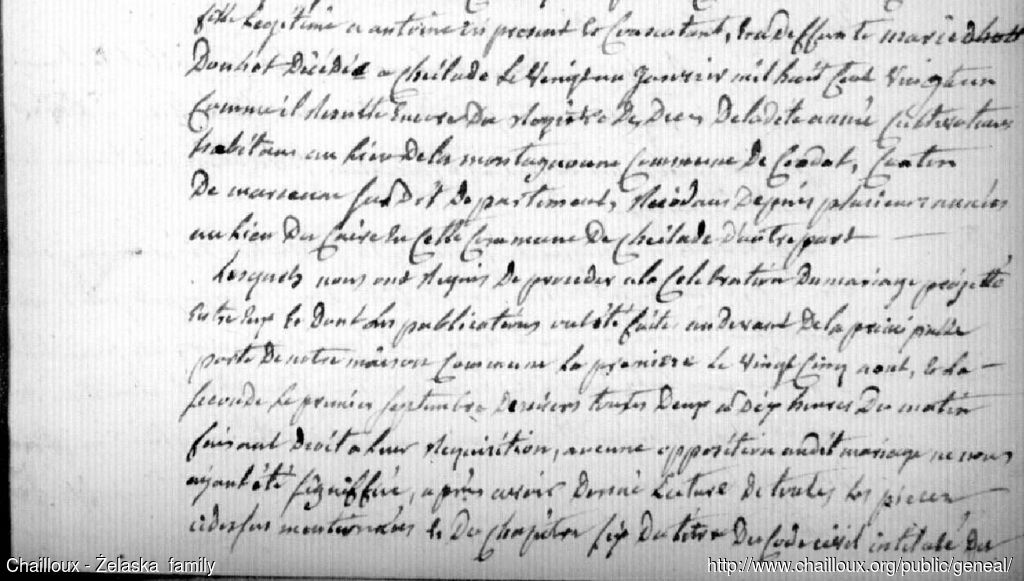 fille Legitime a antoine ici present et Consentant, et a deffunte marie
Douhet Décédée a Cheilade Le Vingt un Janvier mil huit Cent Vingt un
Comme il Resulte Encore Du Registre De Deces De ladite année Cultivateurs
habitans au Lieu De la montagnoune Commune De Condat, Canton
De marcenat susdit Departement, Residans Depuis plusieurs années
au Lieu Du Caire En Cette Commune De Cheilade D'autre part
Lesquels nous ont Requis De proceder a la Celebration Du mariage projetté
Entre Eux Et Dont Les publications ont été faite au devant De la principalle
porte De notre maison Commune La premiere Le Vingt Cinq aout, Et La
seconde Le premier septembre Derniers toutes Deux a Dix heures Du matin
faisant Droit a Leur Requisition, aucune opposition audit mariage ne nous
ayant été signiffiée, apres avoir Donné Lecture De toutes Les pieces
cidessus mentionnées Et Du Chapitre six Du titre Du Code civil intitulé Du
Chailloux - Żelaska family
http://www.chailloux.org/public/geneal/